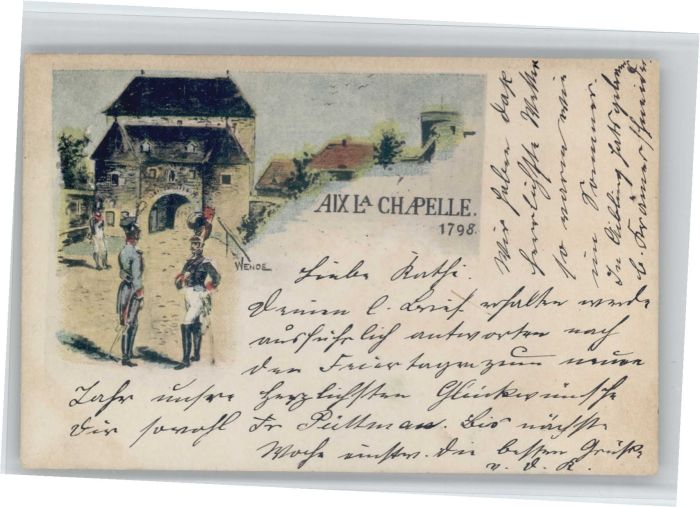 AIX LA CHAPELLE.
1798.
WENDE
Liebe Käthe.
Deinen l. Brief erhalten werde
ausführlich antworten nach
den Feiertagen zum neuen
Jahr unsre herzlichsten Glückwünsche
Dir sowohl Fr Püttman. Bis nächste
Woche einstw. die besten Grüße
v. d. K.
Wir haben das
herrlichste Wetter
so warm wie
im Sommer.